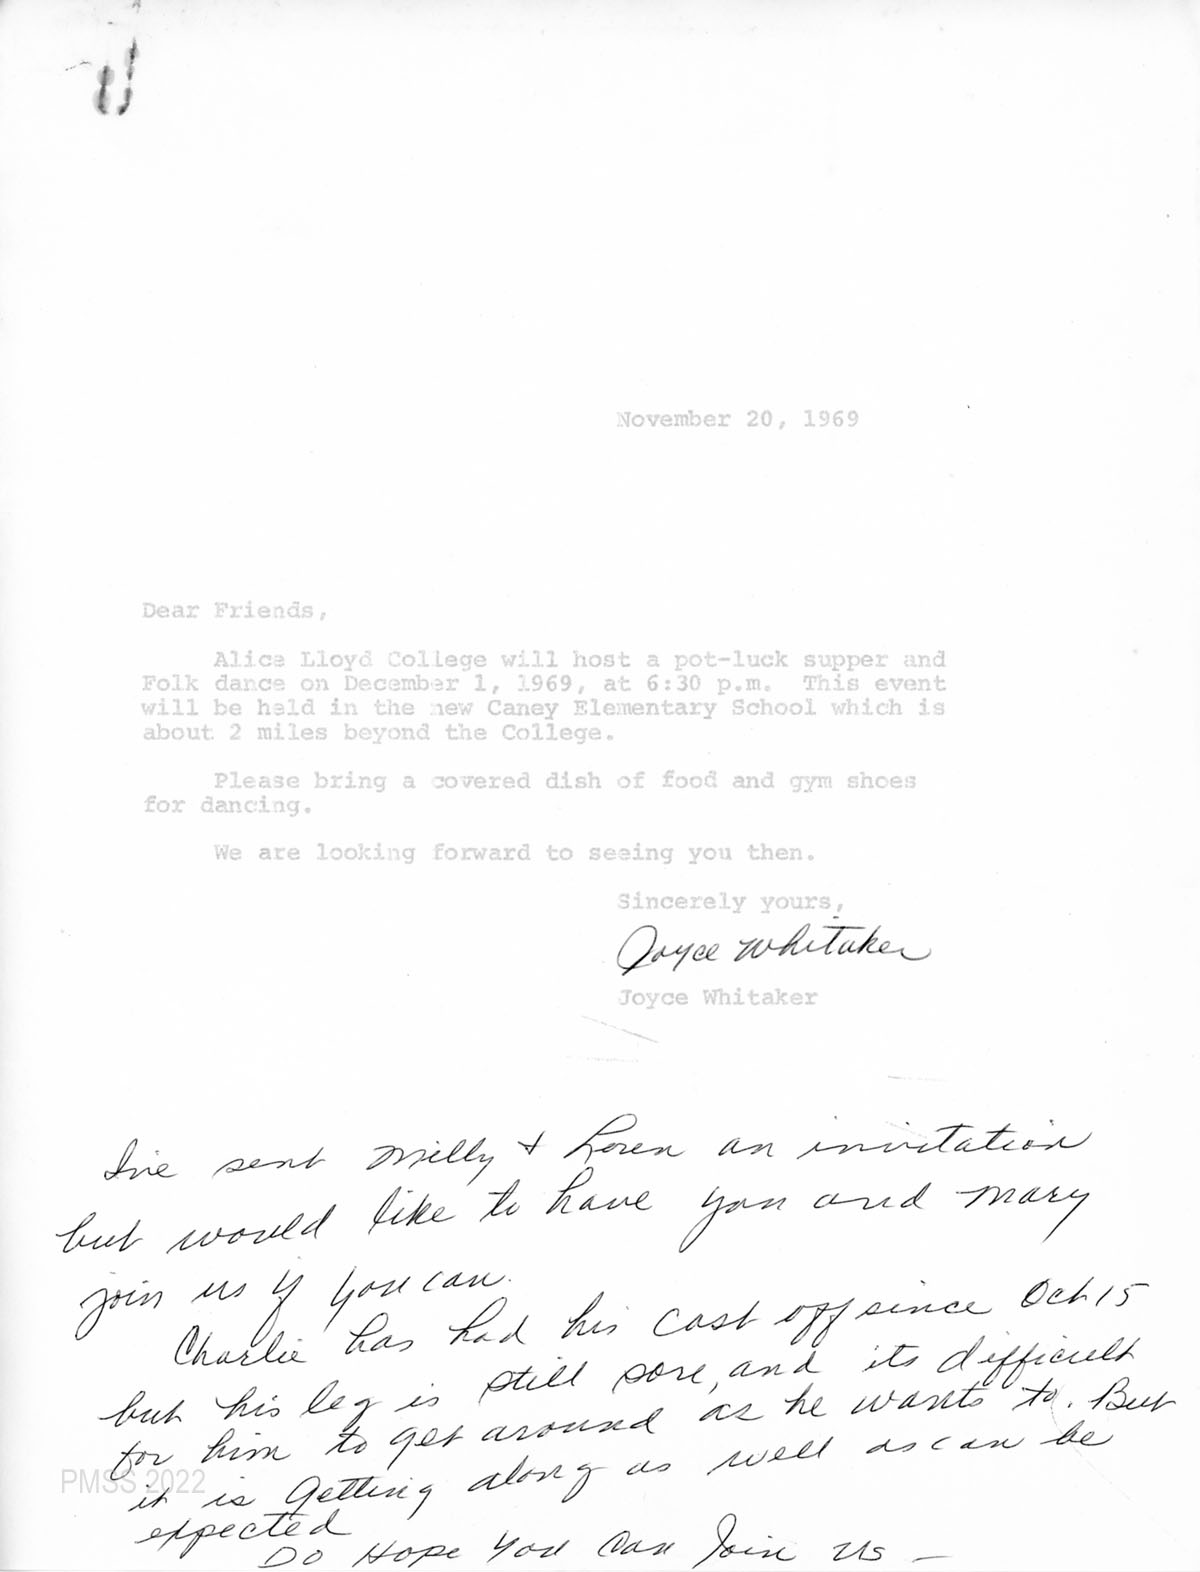 November 20, 1969
Dear Friends,
Alice Lloyd College will host a pot-luck supper and
Folk dance on December 1, 1969, at 6:30 p.m. This event
will be held in the new Caney Elementary School which is
about 2 miles beyond the College.
Please bring a covered dish of food and gym shoes
for dancing.
We are looking forward to seeing you then.
Sincerely yours,
Joyce Whitaker
Joyce Whitaker
I've sent Milly + Loren an invitation
but would like to have you and Mary
join us if you can.
Charlie has had his cast off since Oct 15
but his leg is still sore, and its difficult
for him to get around as he wants to. But
it is getting along as well as can be
expected
Do Hope You Can Join Us –
PMSS 2022